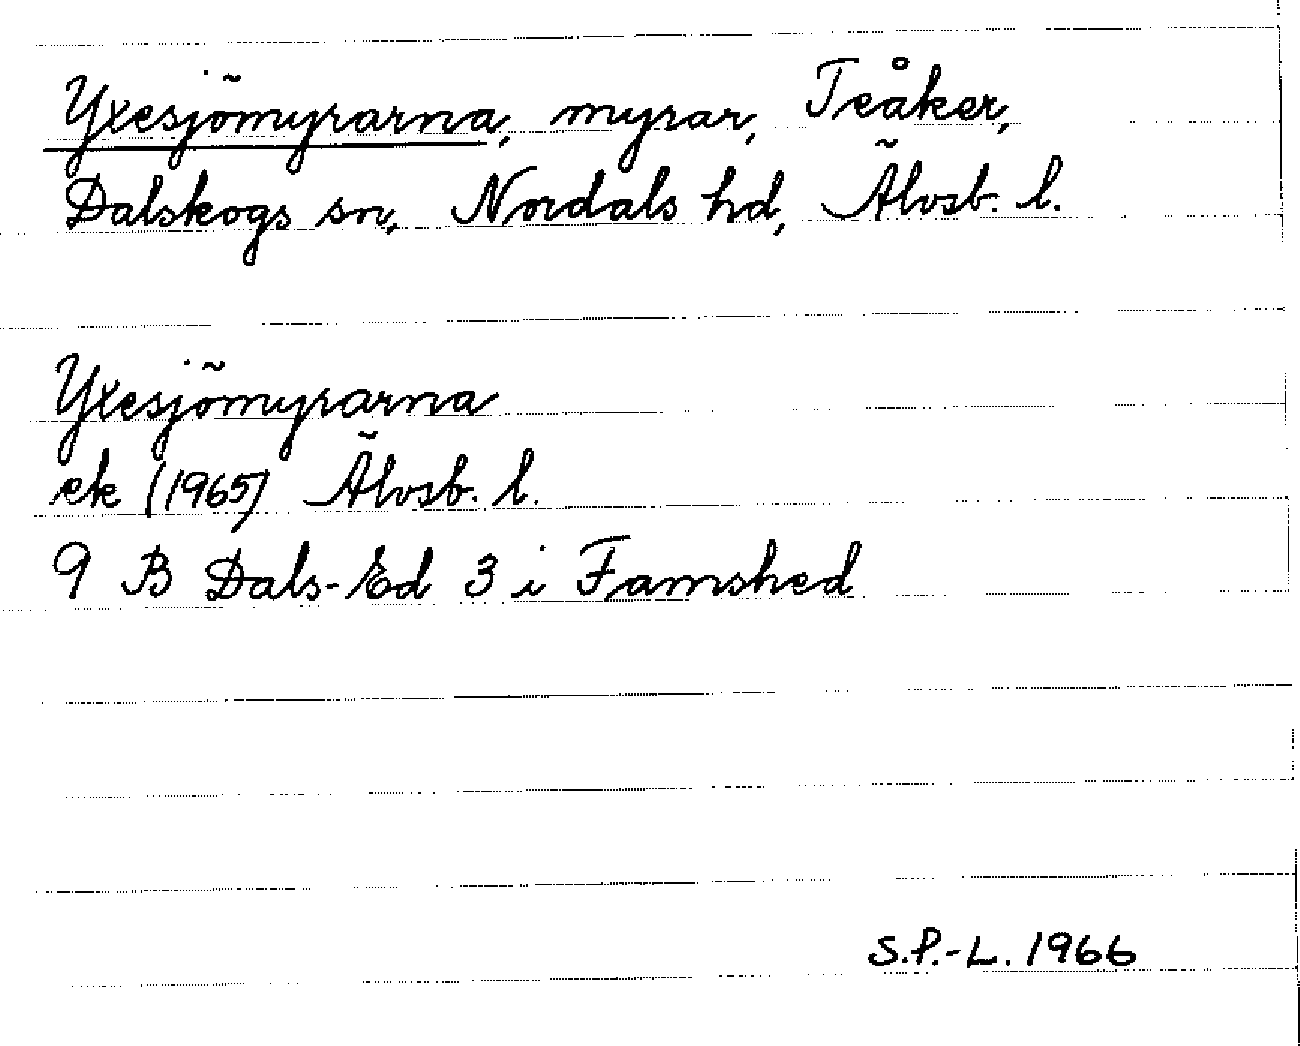 Yxesjömyrarna, myrar, Teåker,
Dalskogs sn, Nordals hd, Älvsb. l.
Yxesjömyrarna
ek (1965) Älvsb. l.
9 B Dals-Ed 3 i Famshed
S.P.-L. 1966